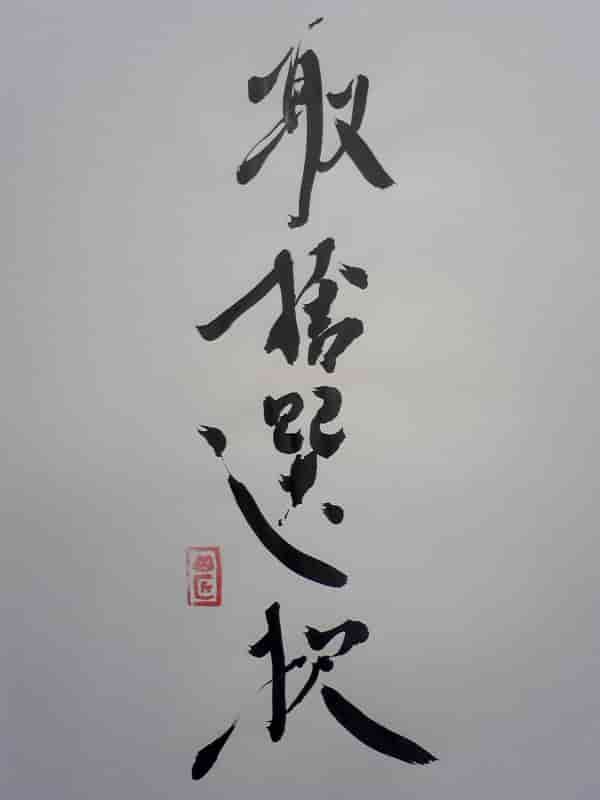 取捨選択